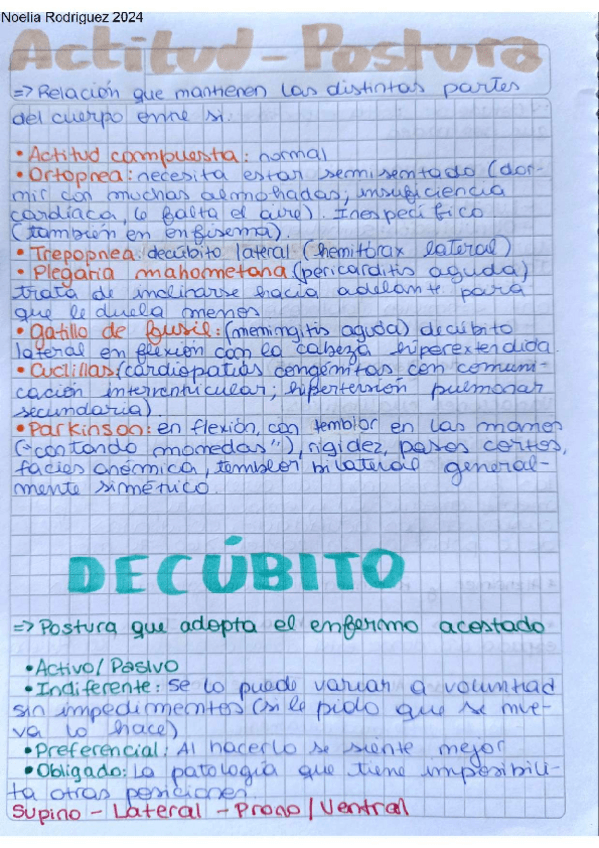 Noelia Rodriguez 2024
Actitud - Postura
=> Relación que mantienen las distintas partes
del cuerpo entre si.
• Actitud compuesta: normal
• Ortopnea: necesita estar semisentado (dor-
mir con muchas almohadas, insuficiencia
cardíaca, le falta el aire). Inespecífico
(también en enfisema).
• Trepopnea: decúbito lateral (hemitórax lateral)
• Plegaria mahometana (pericarditis aguda)
trata de inclinarse hacia adelante para
que le duela menos
• Gatillo de fusil: (meningitis aguda) decúbito
lateral en flexión con la cabeza hiperextendida.
• Cuclillas (cardiopatías congénitas con comuni-
cación interventricular; hipertensión pulmonar
secundaria).
• Parkinson: en flexión, con temblor en las manos
("contando monedas"), rigidez, pasos cortos,
facies anémica, temblor bilateral general-
mente simétrico.
DECÚBITO
=> Postura que adopta el enfermo acostado
• Activo / Pasivo
• Indiferente: se lo puede variar a voluntad
sin impedimentos (si le pido que se mue-
va lo hace)
• Preferencial: Al hacerlo se siente mejor
• Obligado: La patología que tiene imposibili-
ta otras posiciones.
Supino - Lateral - Prono / Ventral